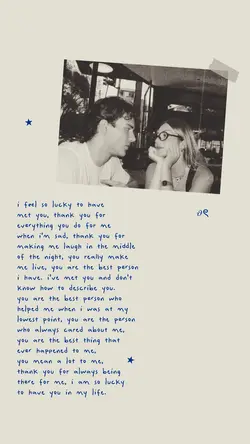 i feel so lucky to have
met you, thank you for
everything you do for me
when i'm sad, thank you for
making me laugh in the middle
of the night, you really make
me live, you are the best person
i have. i've met you and don't
know how to describe you.
you are the best person who
helped me when i was at my
lowest point, you are the person
who always cared about me,
you are the best thing that
ever happened to me,
you mean a lot to me,
thank you for always being
there for me, i am so lucky
to have you in my life.